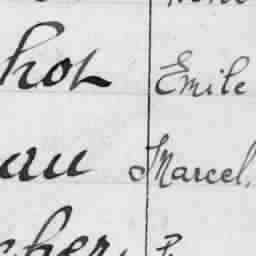 hot Emile
au Marcel.
cher,